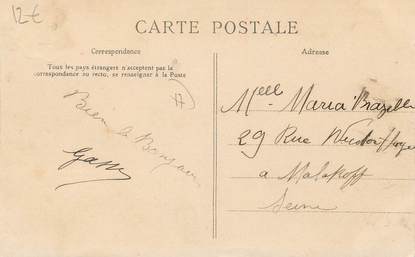 12€
CARTE POSTALE
Correspondance
Tous les pays étrangers n'acceptent pas la
correspondance au recto, se renseigner à la Poste
Bien le Bonjour
Adresse
Melle Maria
29 Rue
a Malakoff
Seine